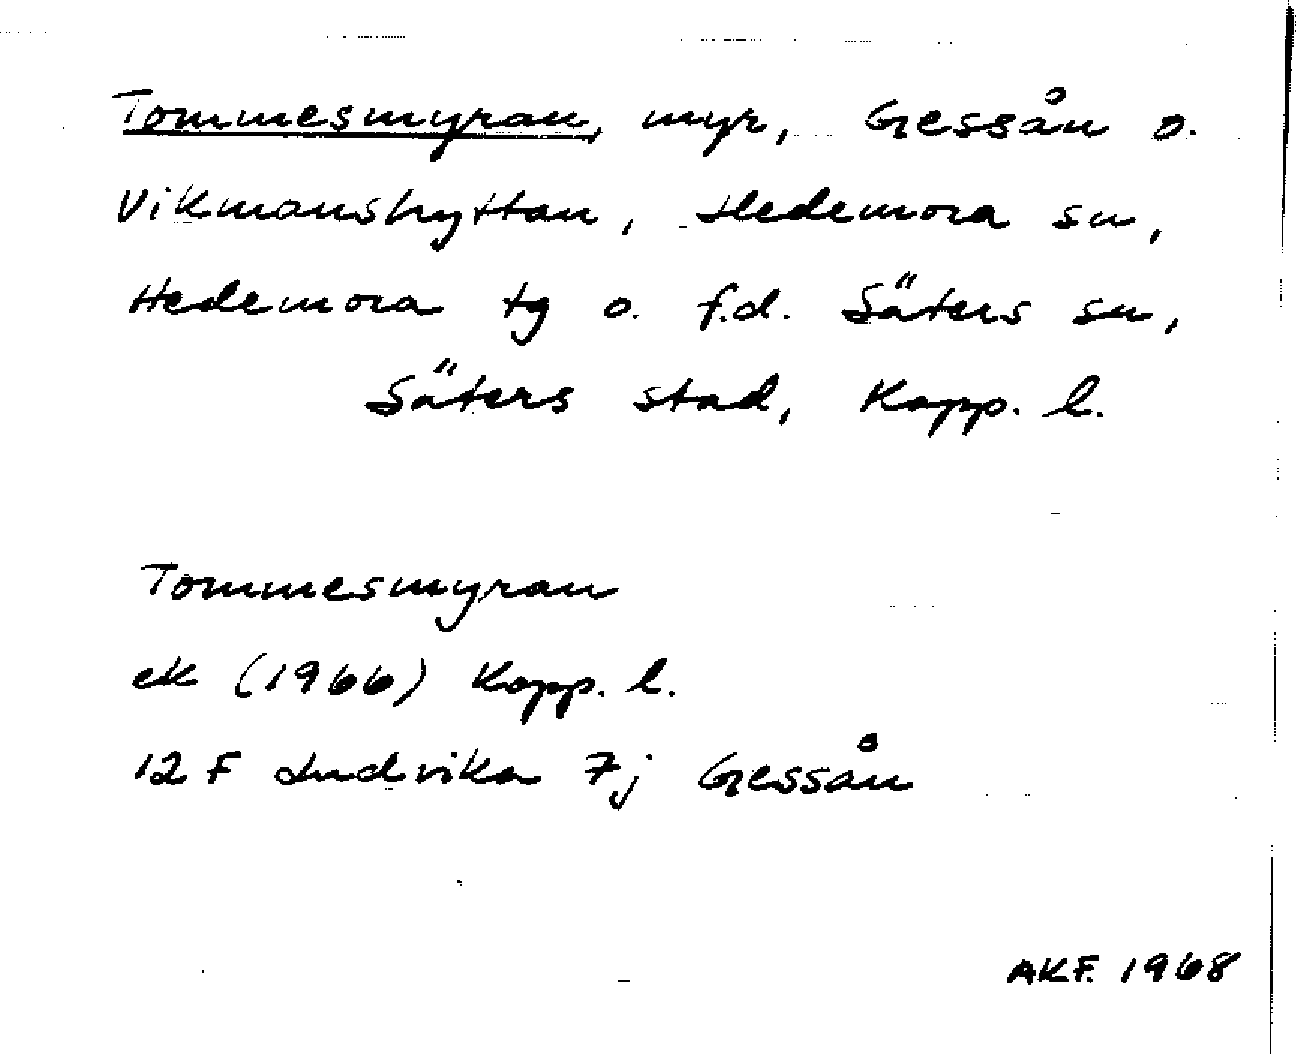 Tommesmyran, myr, Gessån o.
Vikmanshyttan, Hedemora sn,
Hedemora tg o. f.d. Säters sn,
Säters stad, Kopp. l.
Tommesmyran
ek (1966) Kopp. l.
12 F Ludvika 7j Gessån
AKF. 1968